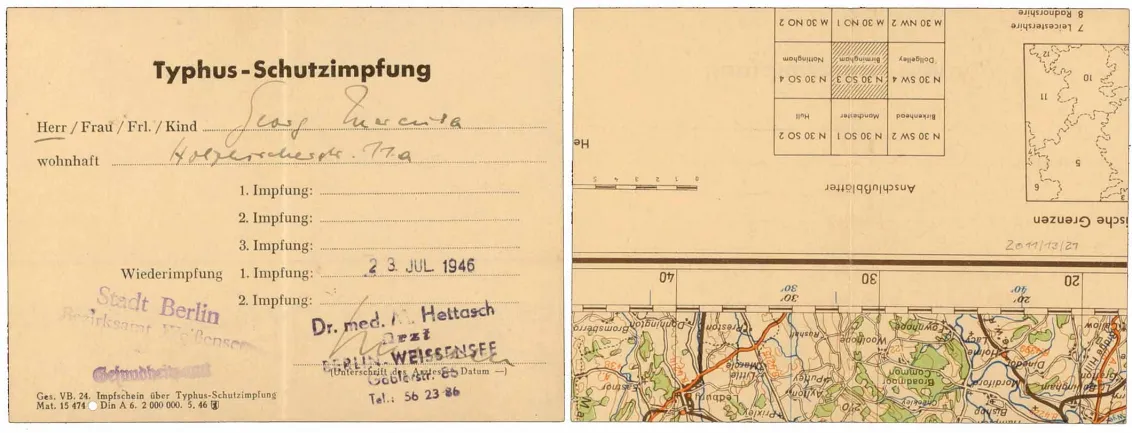 Typhus-Schutzimpfung
Herr / Frau / Frl. / Kind Georg
wohnhaft 11a
1. Impfung:
2. Impfung:
3. Impfung:
Wiederimpfung 1. Impfung: 23. JUL. 1946
2. Impfung:
Stadt Berlin
Bezirksamt Weißensee
Gesundheitsamt
Dr. med. Hettasch
Arzt
BERLIN-WEISSENSEE
(Unterschrift des Arztes — Datum —)
Goblerstr. 86
Tel.: 56 23 86
Ges. VB. 24. Impfschein über Typhus-Schutzimpfung
Mat. 15 474 Din A 6. 2 000 000. 5. 46
7 Leicestershire
8 Radnorshire
M 30 NW 2
M 30 NO 1
M 30 NO 2
N 30 SW 4
Dollgelley
N 30 SO 3
Birmingham
N 30 SO 4
Nottingham
N 30 SW 2
Birkenhead
N 30 SO 1
Manchester
N 30 SO 2
Hull
12
10
11
5
6
He
0 1 2 3 4 5
Anschlußblätter
ische Grenzen
2011/13/21
20
30
40
20'
40'
30'
30'
Bromsberg
Donnington
Preston
Rushall
Woolhope
Fownhope
Holme Lacy
Dinedor
Callow
Eastnor
Ledbury
Little Marcle
Putley
Aylton
Pixley
Broadmoor Common
Checkley
Mordiford
Bullingham
Grafton
Bishop